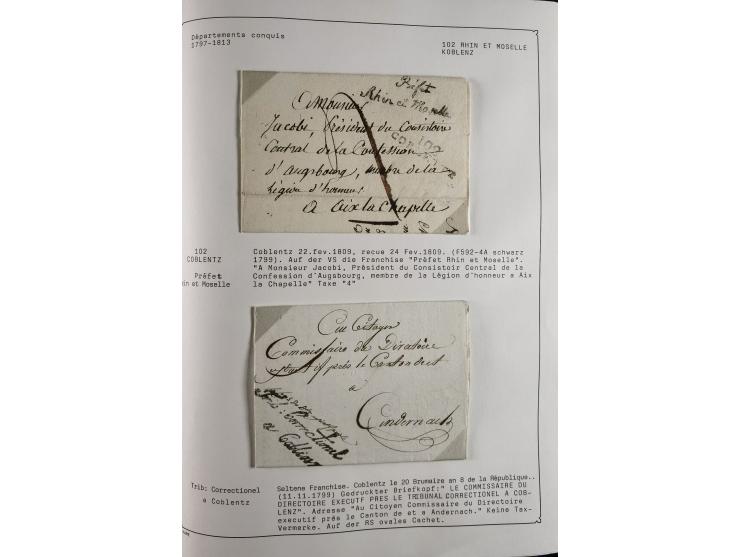 Départements conquis
1797-1813
102 RHIN ET MOSELLE
KOBLENZ
Préfet
Rhin et Moselle
A Monsieur
Jacobi, Président du Consistoire
Central de la Confession
d'Augsbourg, membre de la
Légion d'honneur
a Aix la Chapelle
102
COBLENTZ
Préfet
in et Moselle
Coblentz 22.fev.1809, recue 24 Fev.1809. (F592-4A schwarz
1799). Auf der VS die Franchise "Préfet Rhin et Moselle".
"A Monsieur Jacobi, Président du Consistoir Central de la
Confession d'Augsbourg, membre de la Légion d'honneur a Aix
la Chapelle" Taxe "4"
Citoyen
Commissaire du Directoire
près le Canton de et
a
Andernach
Trib: Correctionel
a Coblentz
Seltene Franchise. Coblentz le 20 Brumaire an 8 de la République..
(11.11.1799) Gedruckter Briefkopf:" LE COMMISSAIRE DU
DIRECTOIRE EXECUTF PRES LE TRIBUNAL CORRECTIONEL A COB-
LENZ". Adresse "Au Citoyen Commissaire du Directoire
executif prés le Canton de et a Andernach." Keine Tax-
Vermerke. Auf der RS ovales Cachet.